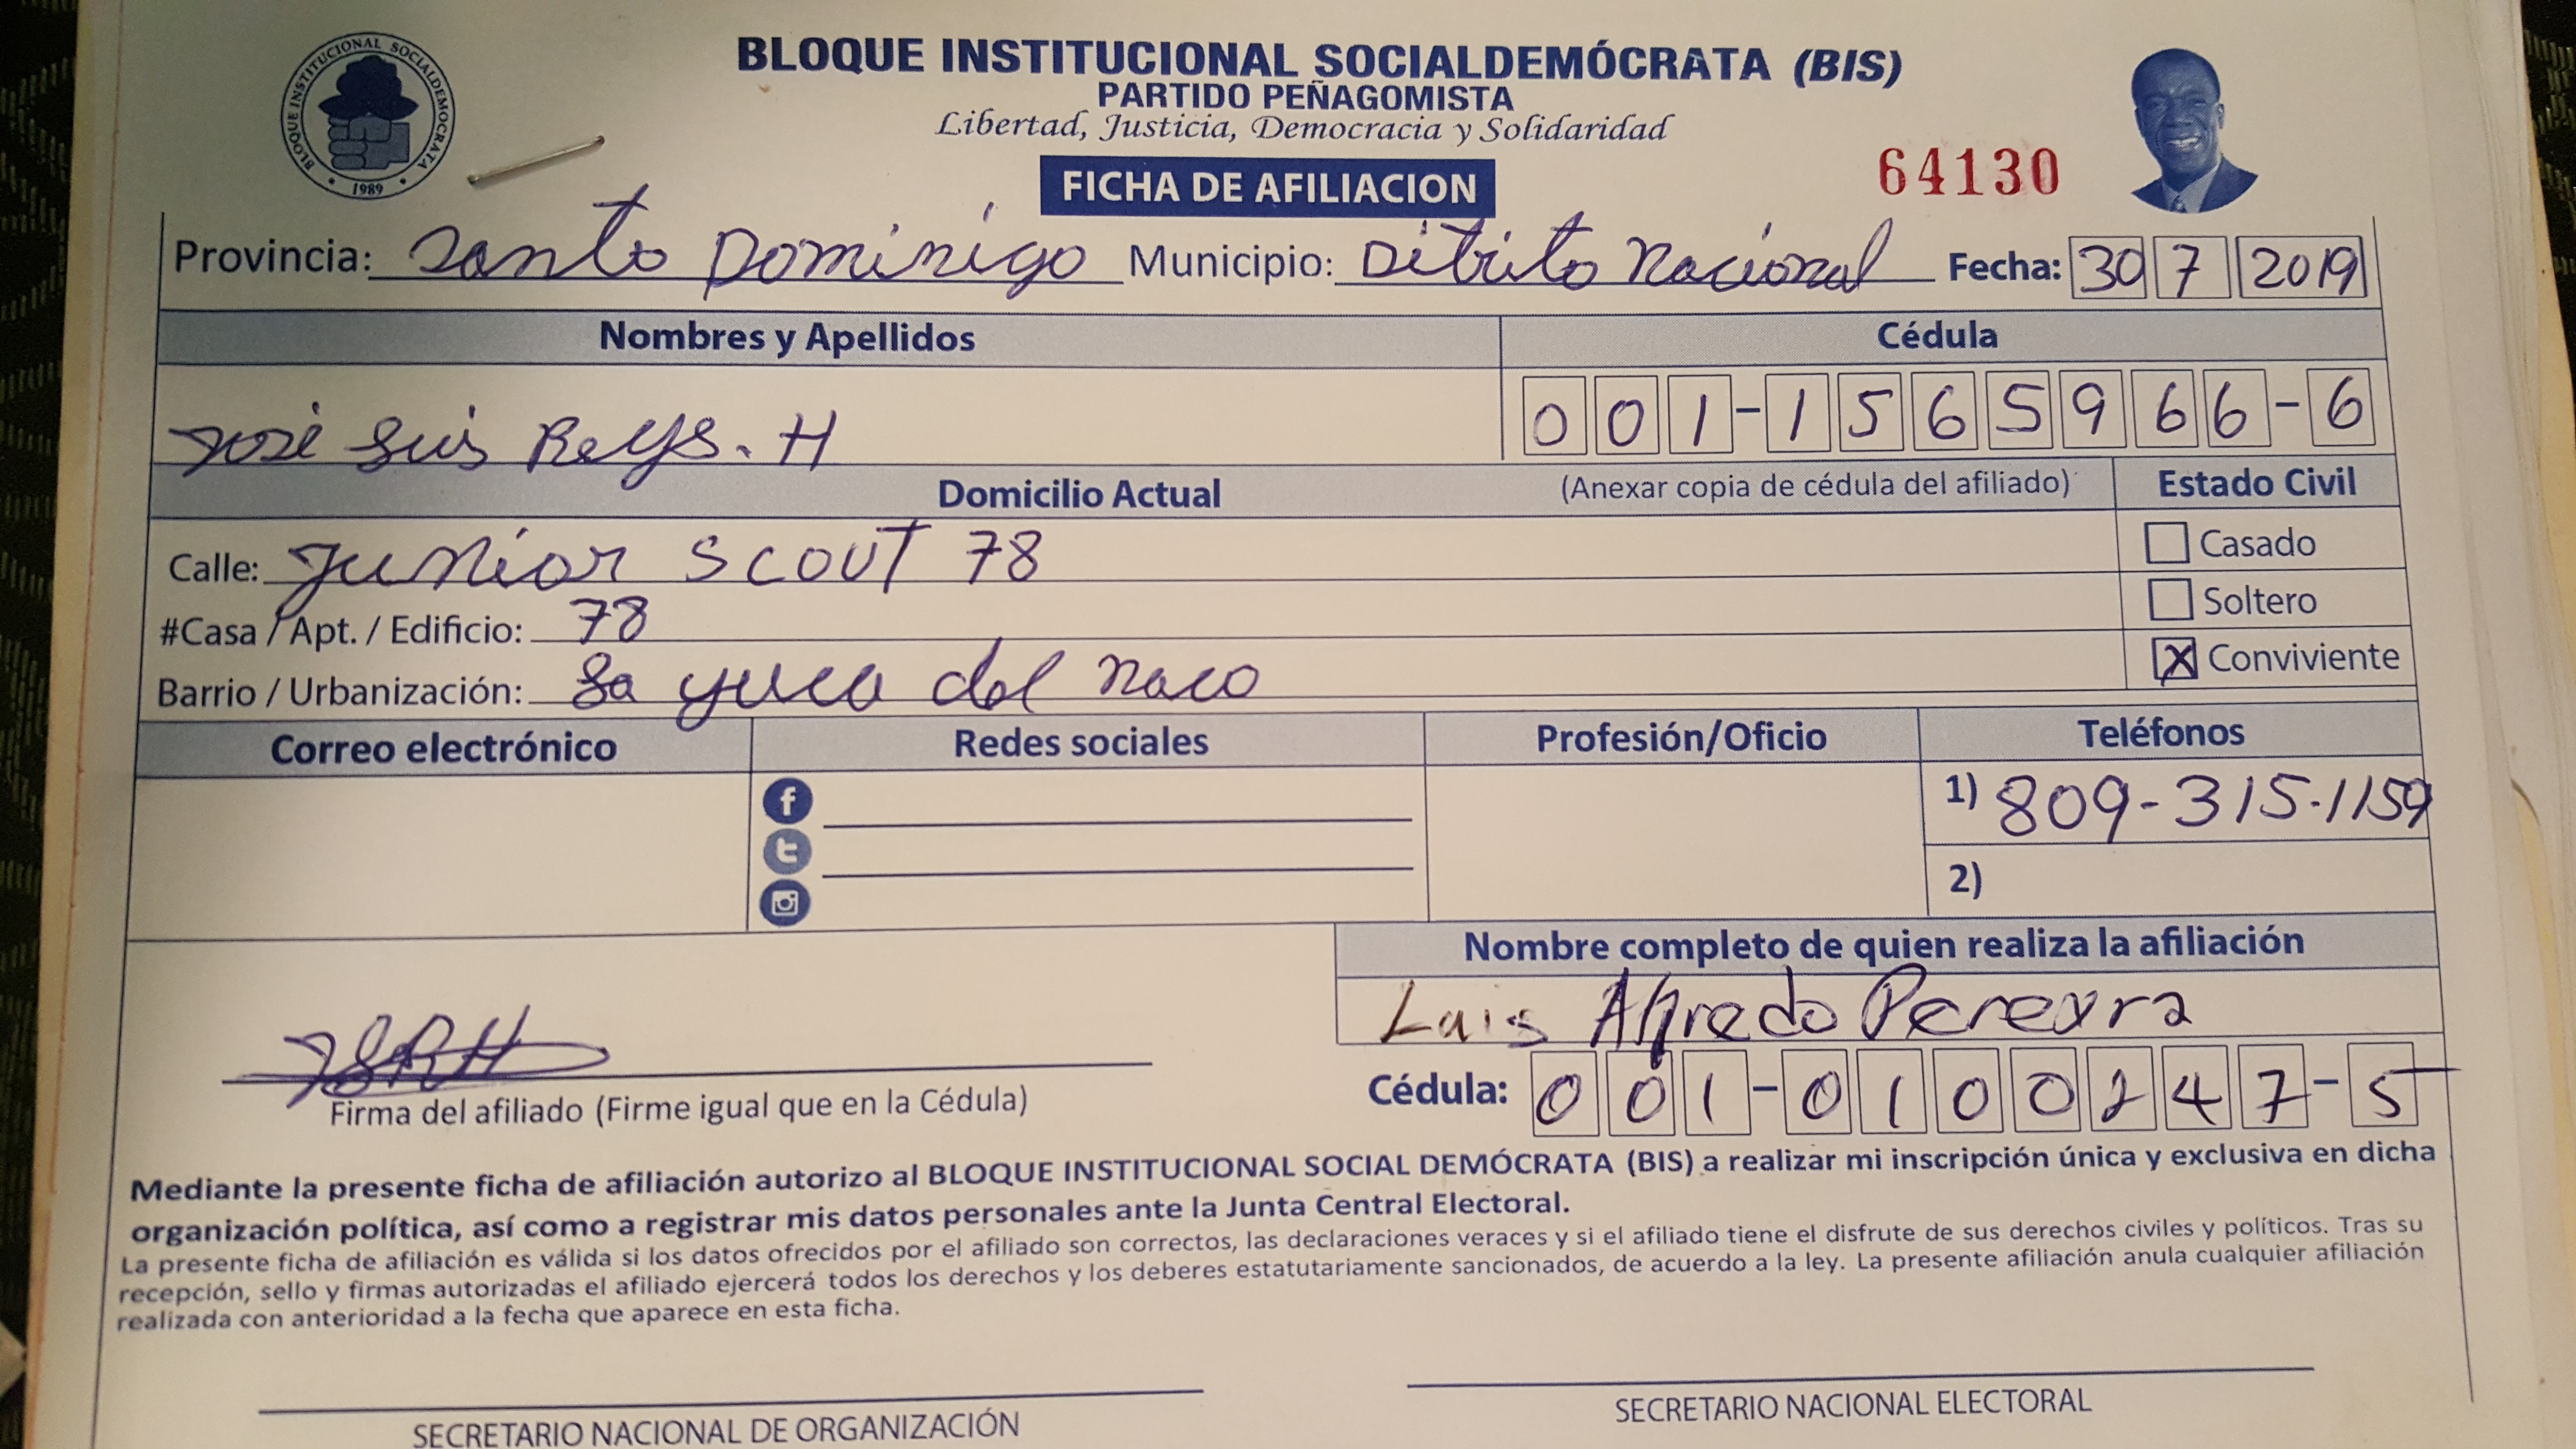 BLOQUE INSTITUCIONAL SOCIALDEMOCRATA
1989
BLOQUE INSTITUCIONAL SOCIALDEMÓCRATA (BIS)
PARTIDO PEÑAGOMISTA
Libertad, Justicia, Democracia y Solidaridad
FICHA DE AFILIACION
64130
Provincia: Santo Dominigo Municipio: Ditrito Nacional Fecha: 30 7 2019
Nombres y Apellidos Cédula
José Luis Reys. H 001-1565966-6
Domicilio Actual (Anexar copia de cédula del afiliado) Estado Civil
Calle: Junior SCOUT 78 Casado
#Casa / Apt. / Edificio: 78 Soltero
Barrio / Urbanización: La yuca del naco X Conviviente
Correo electrónico Redes sociales Profesión/Oficio Teléfonos
1) 809-315-1159
2)
Nombre completo de quien realiza la afiliación
Luis Alfredo Pereyra
JLRH
Firma del afiliado (Firme igual que en la Cédula)
Cédula: 001-0100247-5
Mediante la presente ficha de afiliación autorizo al BLOQUE INSTITUCIONAL SOCIAL DEMÓCRATA (BIS) a realizar mi inscripción única y exclusiva en dicha
organización política, así como a registrar mis datos personales ante la Junta Central Electoral.
La presente ficha de afiliación es válida si los datos ofrecidos por el afiliado son correctos, las declaraciones veraces y si el afiliado tiene el disfrute de sus derechos civiles y políticos. Tras su
recepción, sello y firmas autorizadas el afiliado ejercerá todos los derechos y los deberes estatutariamente sancionados, de acuerdo a la ley. La presente afiliación anula cualquier afiliación
realizada con anterioridad a la fecha que aparece en esta ficha.
SECRETARIO NACIONAL DE ORGANIZACIÓN
SECRETARIO NACIONAL ELECTORAL